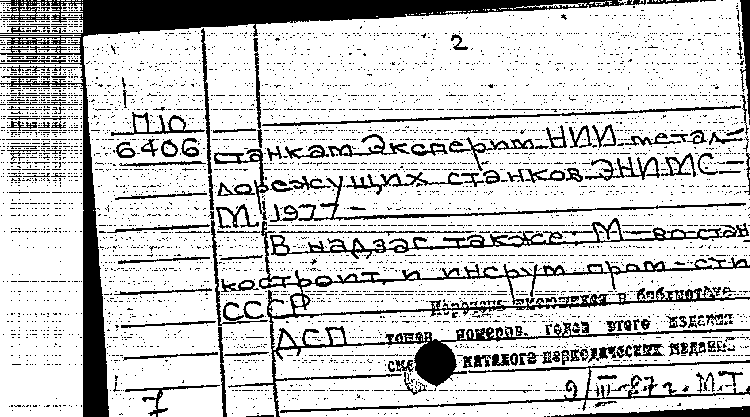 2
П10
6406 станкам. Эксперим. НИИ метал-
лорежущих станков ЭНИМС -
М. 1977 -
В надзаг. также: М-во стан
костроит. и инструм. пром-сти
СССР.
Перечень имеющихся в библиотеке
ДСП томов, номеров, годов этого издания
см. каталога периодических изданий
9/III-87г. М.Т.
7